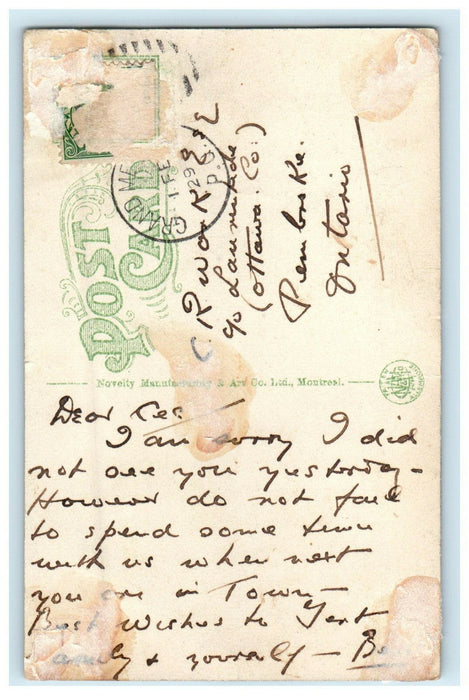 POST CARD
GRAND ME
FE
29
P.Q.
C R Work E E
c/o Laurentide
(Ottawa. Co.)
Pembroke.
Ontario
Novelty Manufacturing & Art Co. Ltd., Montreal.
Dear Cec
I am sorry I did
not see you yesterday -
However do not fail
to spend some time
with us when next
you are in Town -
Best Wishes to Gert
family & yourself -